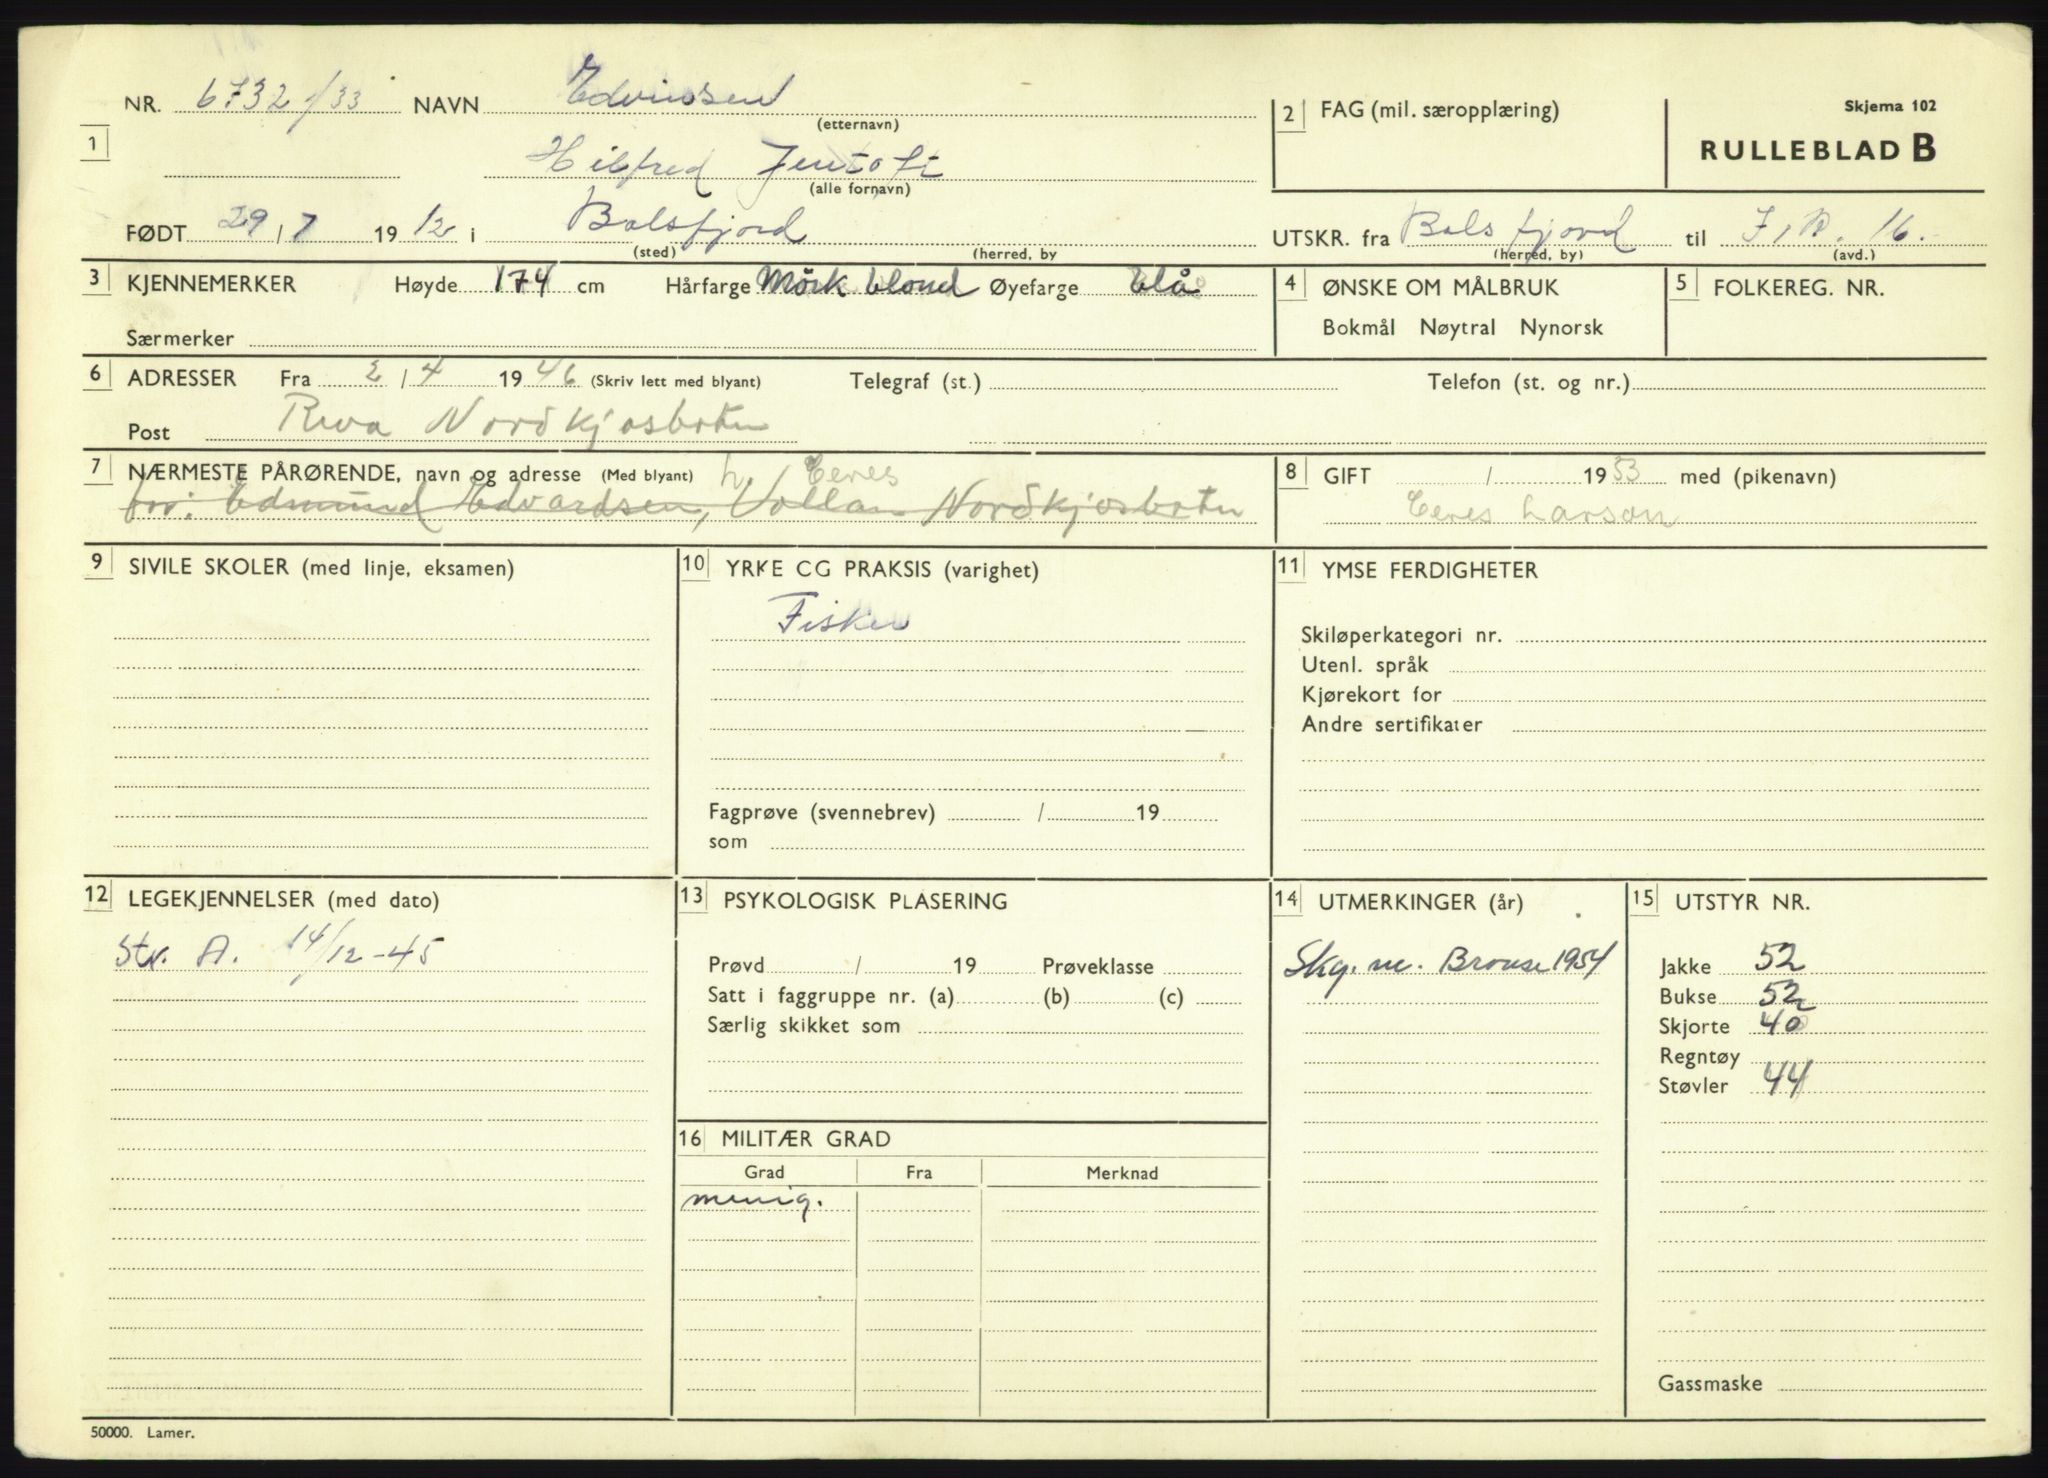 NR. 6732/33 NAVN Edvinssen
(etternavn)
2 FAG (mil. særopplæring)
Skjema 102
RULLEBLAD B
1
Hilfred Jentoft
(alle fornavn)
FØDT 29/7 1912 i Balsfjord
(sted) (herred, by
UTSKR. fra Balsfjord til I.R. 16.
(herred, by) (avd.)
3 KJENNEMERKER Høyde 174 cm Hårfarge Mörk blond Øyefarge blå
Særmerker
4 ØNSKE OM MÅLBRUK
Bokmål Nøytral Nynorsk
5 FOLKEREG. NR.
6 ADRESSER Fra 2/4 1946 (Skriv lett med blyant) Telegraf (st.) Telefon (st. og nr.)
Post Nordkjosbotn
7 NÆRMESTE PÅRØRENDE, navn og adresse (Med blyant) h. Ceres
for: Edmund Edvardsen, Vollan Nordkjosbotn
8 GIFT / 1953 med (pikenavn)
Ceres Larson
9 SIVILE SKOLER (med linje, eksamen)
10 YRKE CG PRAKSIS (varighet)
Fisker
Fagprøve (svennebrev) / 19
som
11 YMSE FERDIGHETER
Skiløperkategori nr.
Utenl. språk
Kjørekort for
Andre sertifikater
12 LEGEKJENNELSER (med dato)
Str. A. 14/12-45
13 PSYKOLOGISK PLASERING
Prøvd / 19 Prøveklasse
Satt i faggruppe nr. (a) (b) (c)
Særlig skikket som
14 UTMERKINGER (år)
Skg. m. Bronse 1954
15 UTSTYR NR.
Jakke 52
Bukse 52
Skjorte 40
Regntøy
Støvler 44
Gassmaske
16 MILITÆR GRAD
Grad Fra Merknad
menig.
50000. Lamer.